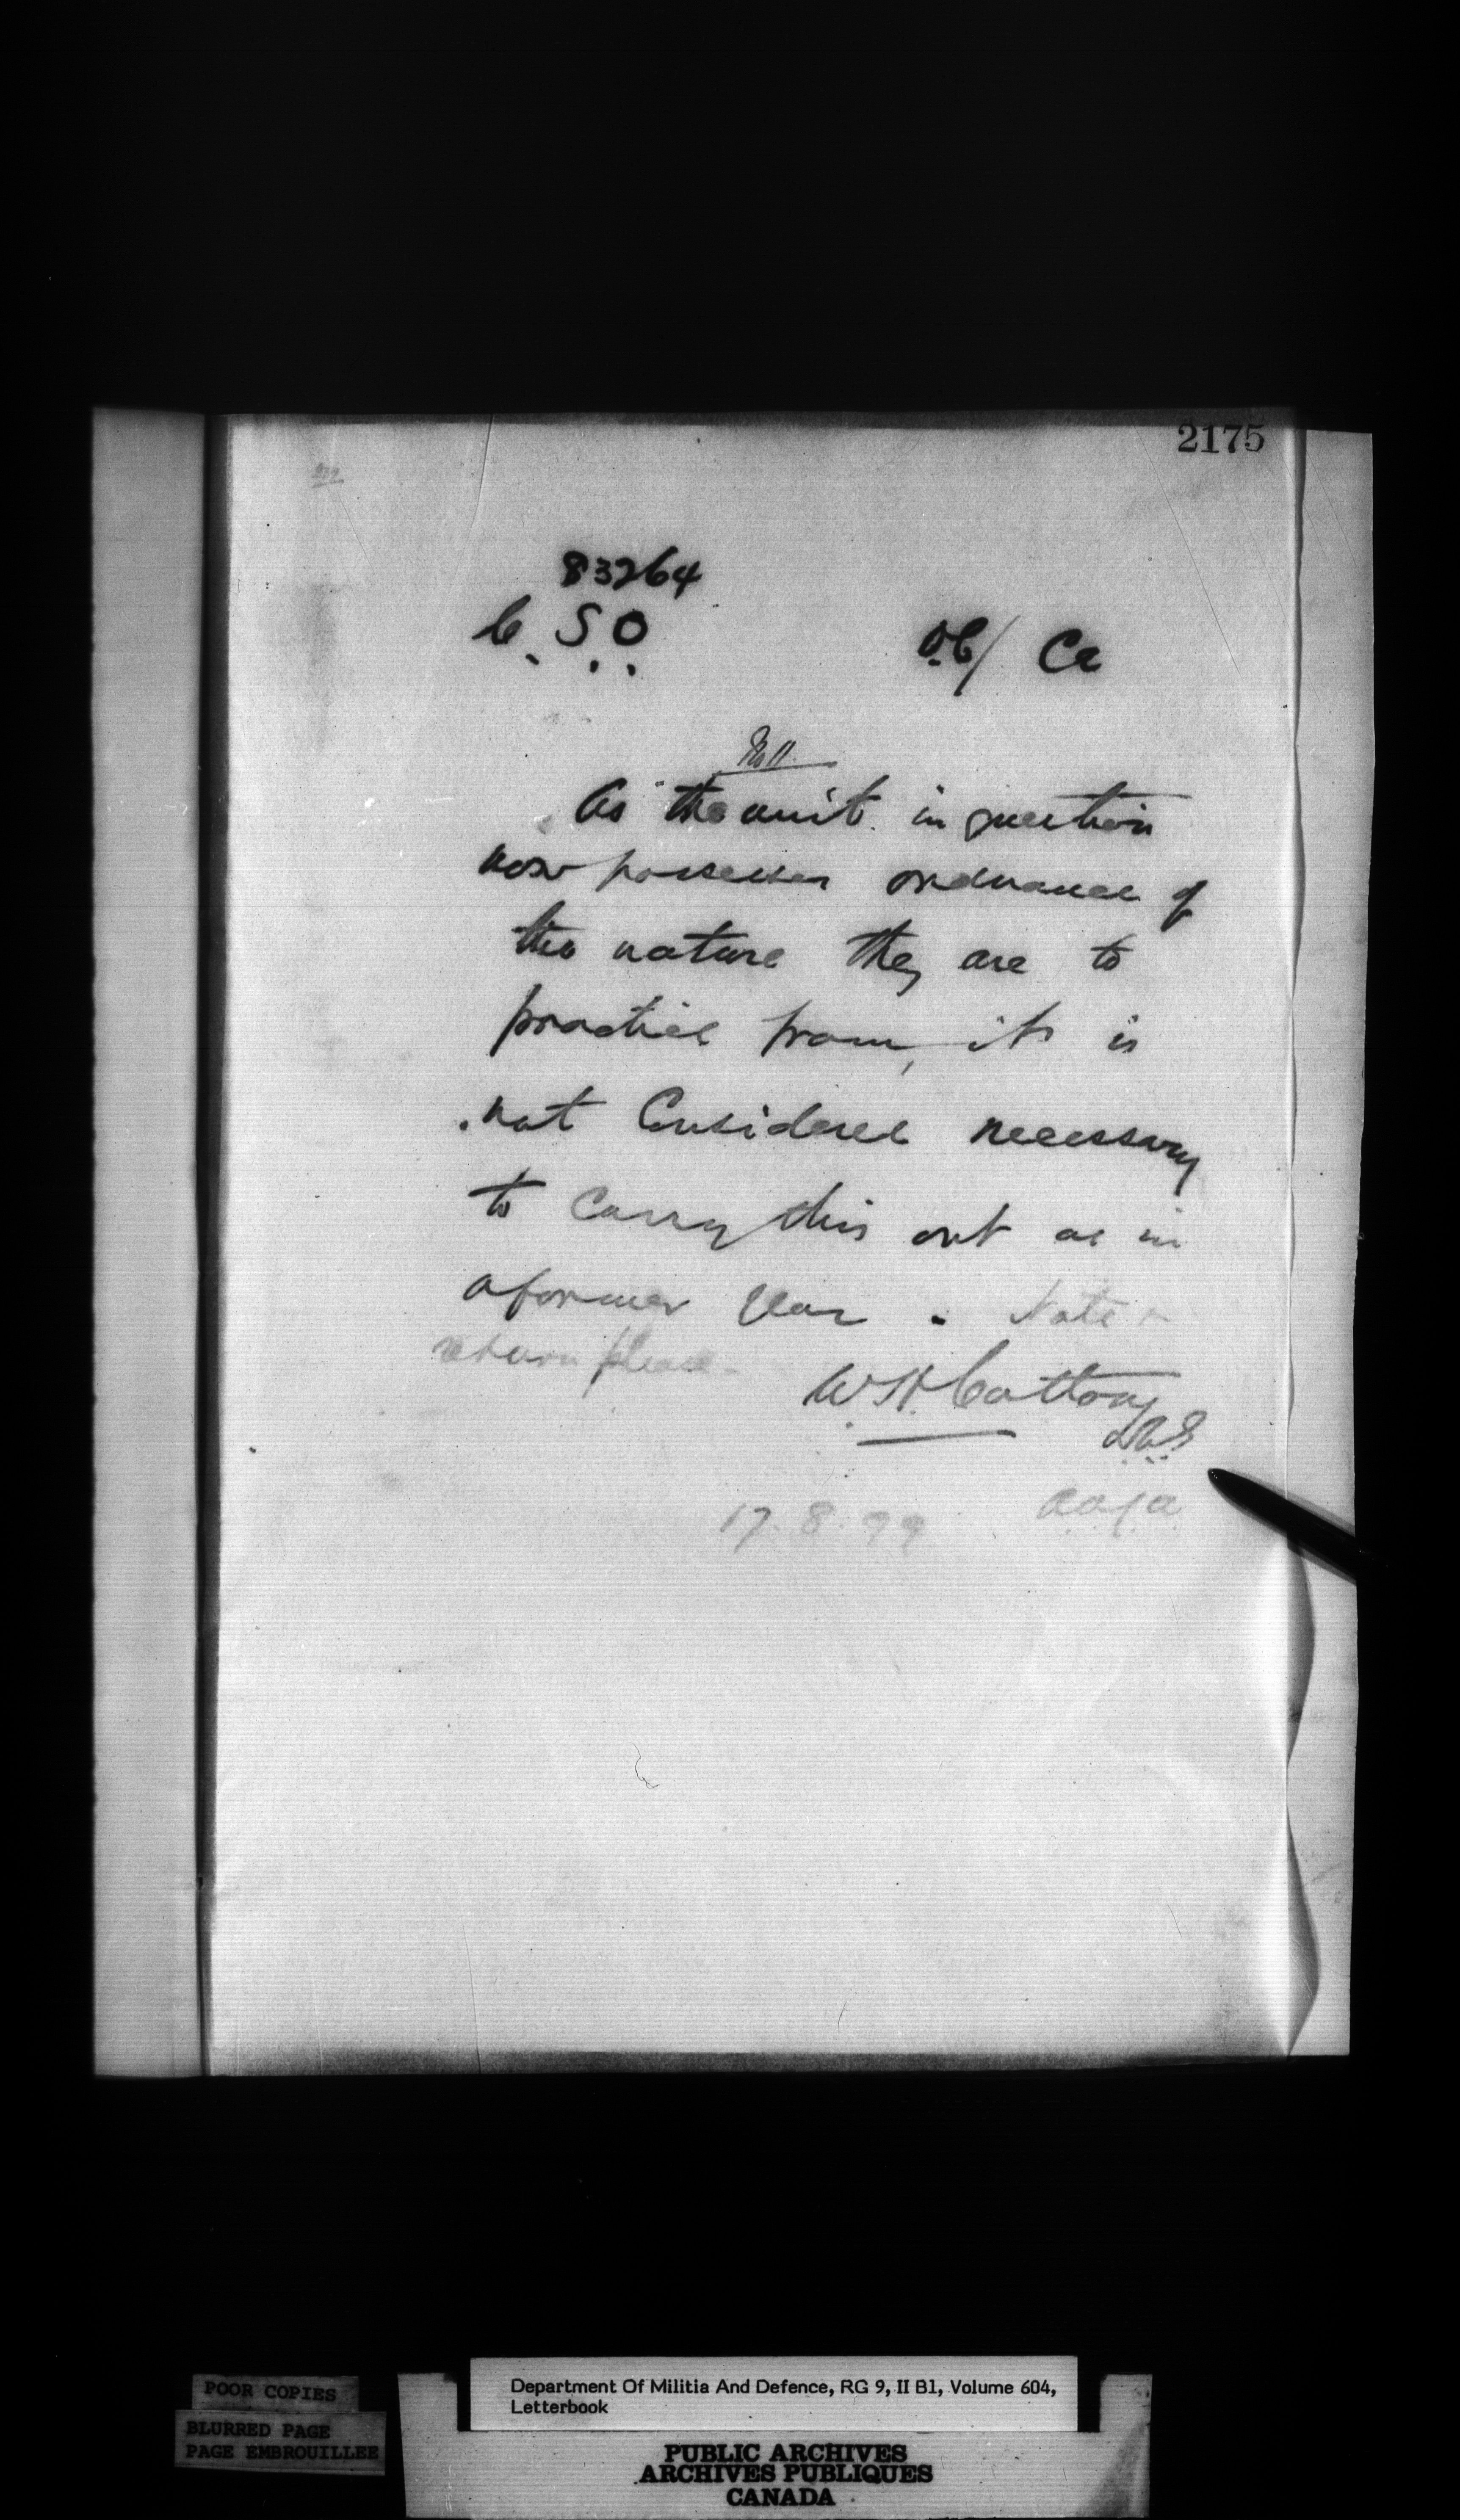 2175
83264
C.S.O.
O.C/ Ca
No 11.
As the unit in question
now possesses ordnance of
the nature they are to
practice from, it is
not Considered necessary
to Carry this out as in
a former year. Note &
return please.
W.H. Cotton
17.8.99
a.a.g.a.
POOR COPIES
BLURRED PAGE
PAGE EMBROUILLEE
Department Of Militia And Defence, RG 9, II B1, Volume 604,
Letterbook
PUBLIC ARCHIVES
ARCHIVES PUBLIQUES
CANADA